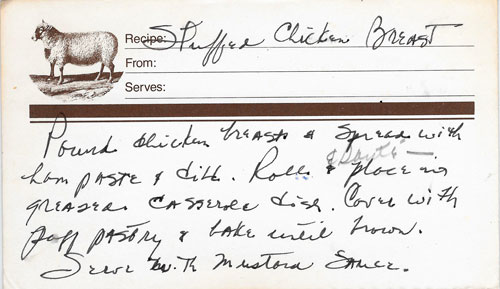 Recipe: Stuffed Chicken Breast
From:
Serves:
Pound chicken breasts & spread with
ham paste & dill. Roll & "Sauté" & place in
greased casserole dish. Cover with
puff pastry & bake until brown.
Serve with mustard sauce.